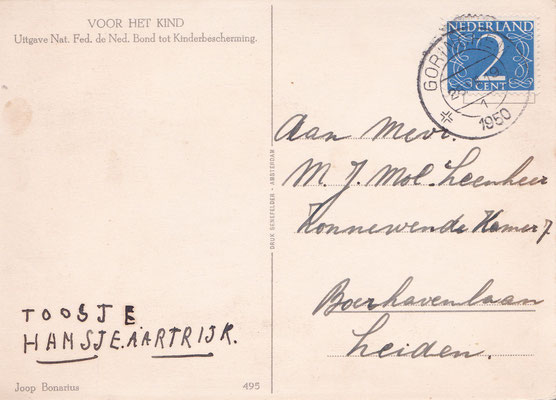 VOOR HET KIND
Uitgave Nat. Fed. de Ned. Bond tot Kinderbescherming.
NEDERLAND
2
CENT
GORIN
1
1950
DRUK SENSFELDER - AMSTERDAM
Aan Mevr.
M. J. Mol-Leenheer
Konnewende Kamer 7.
Boerhavenlaan
Leiden.
TOOSJE
HANSJE.AARTRIJK.
Joop Bonarius
495